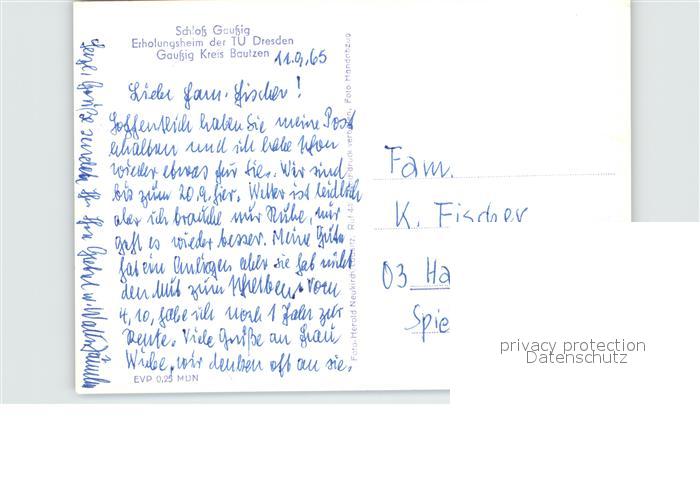 Schloß Gaußig
Erholungsheim der TU Dresden
Gaußig Kreis Bautzen
11.9.65
Liebe Fam. Fischer!
Hoffentlich haben Sie meine Post
erhalten und ich habe schon
wieder etwas für Sie. Wir sind
bis zum 20.9. hier. Wetter ist leidlich
aber ich brauche nur Ruhe, mir
geht es wieder besser. Meine Gute
hat ein Anliegen aber sie hat nicht
den Mut zum Schreiben. Vom
4.10. habe ich noch 1 Jahr zur
Rente. Viele Grüße an Frau
Wiebe, wir denken oft an sie.
Herzl. Grüße senden
EVP 0,25 MDN
Foto: Herold Neukirch/Lausitz, Ruf
Foto Handabzug
Fam.
K. Fischer
03 Ha
Spie
privacy protection
Datenschutz